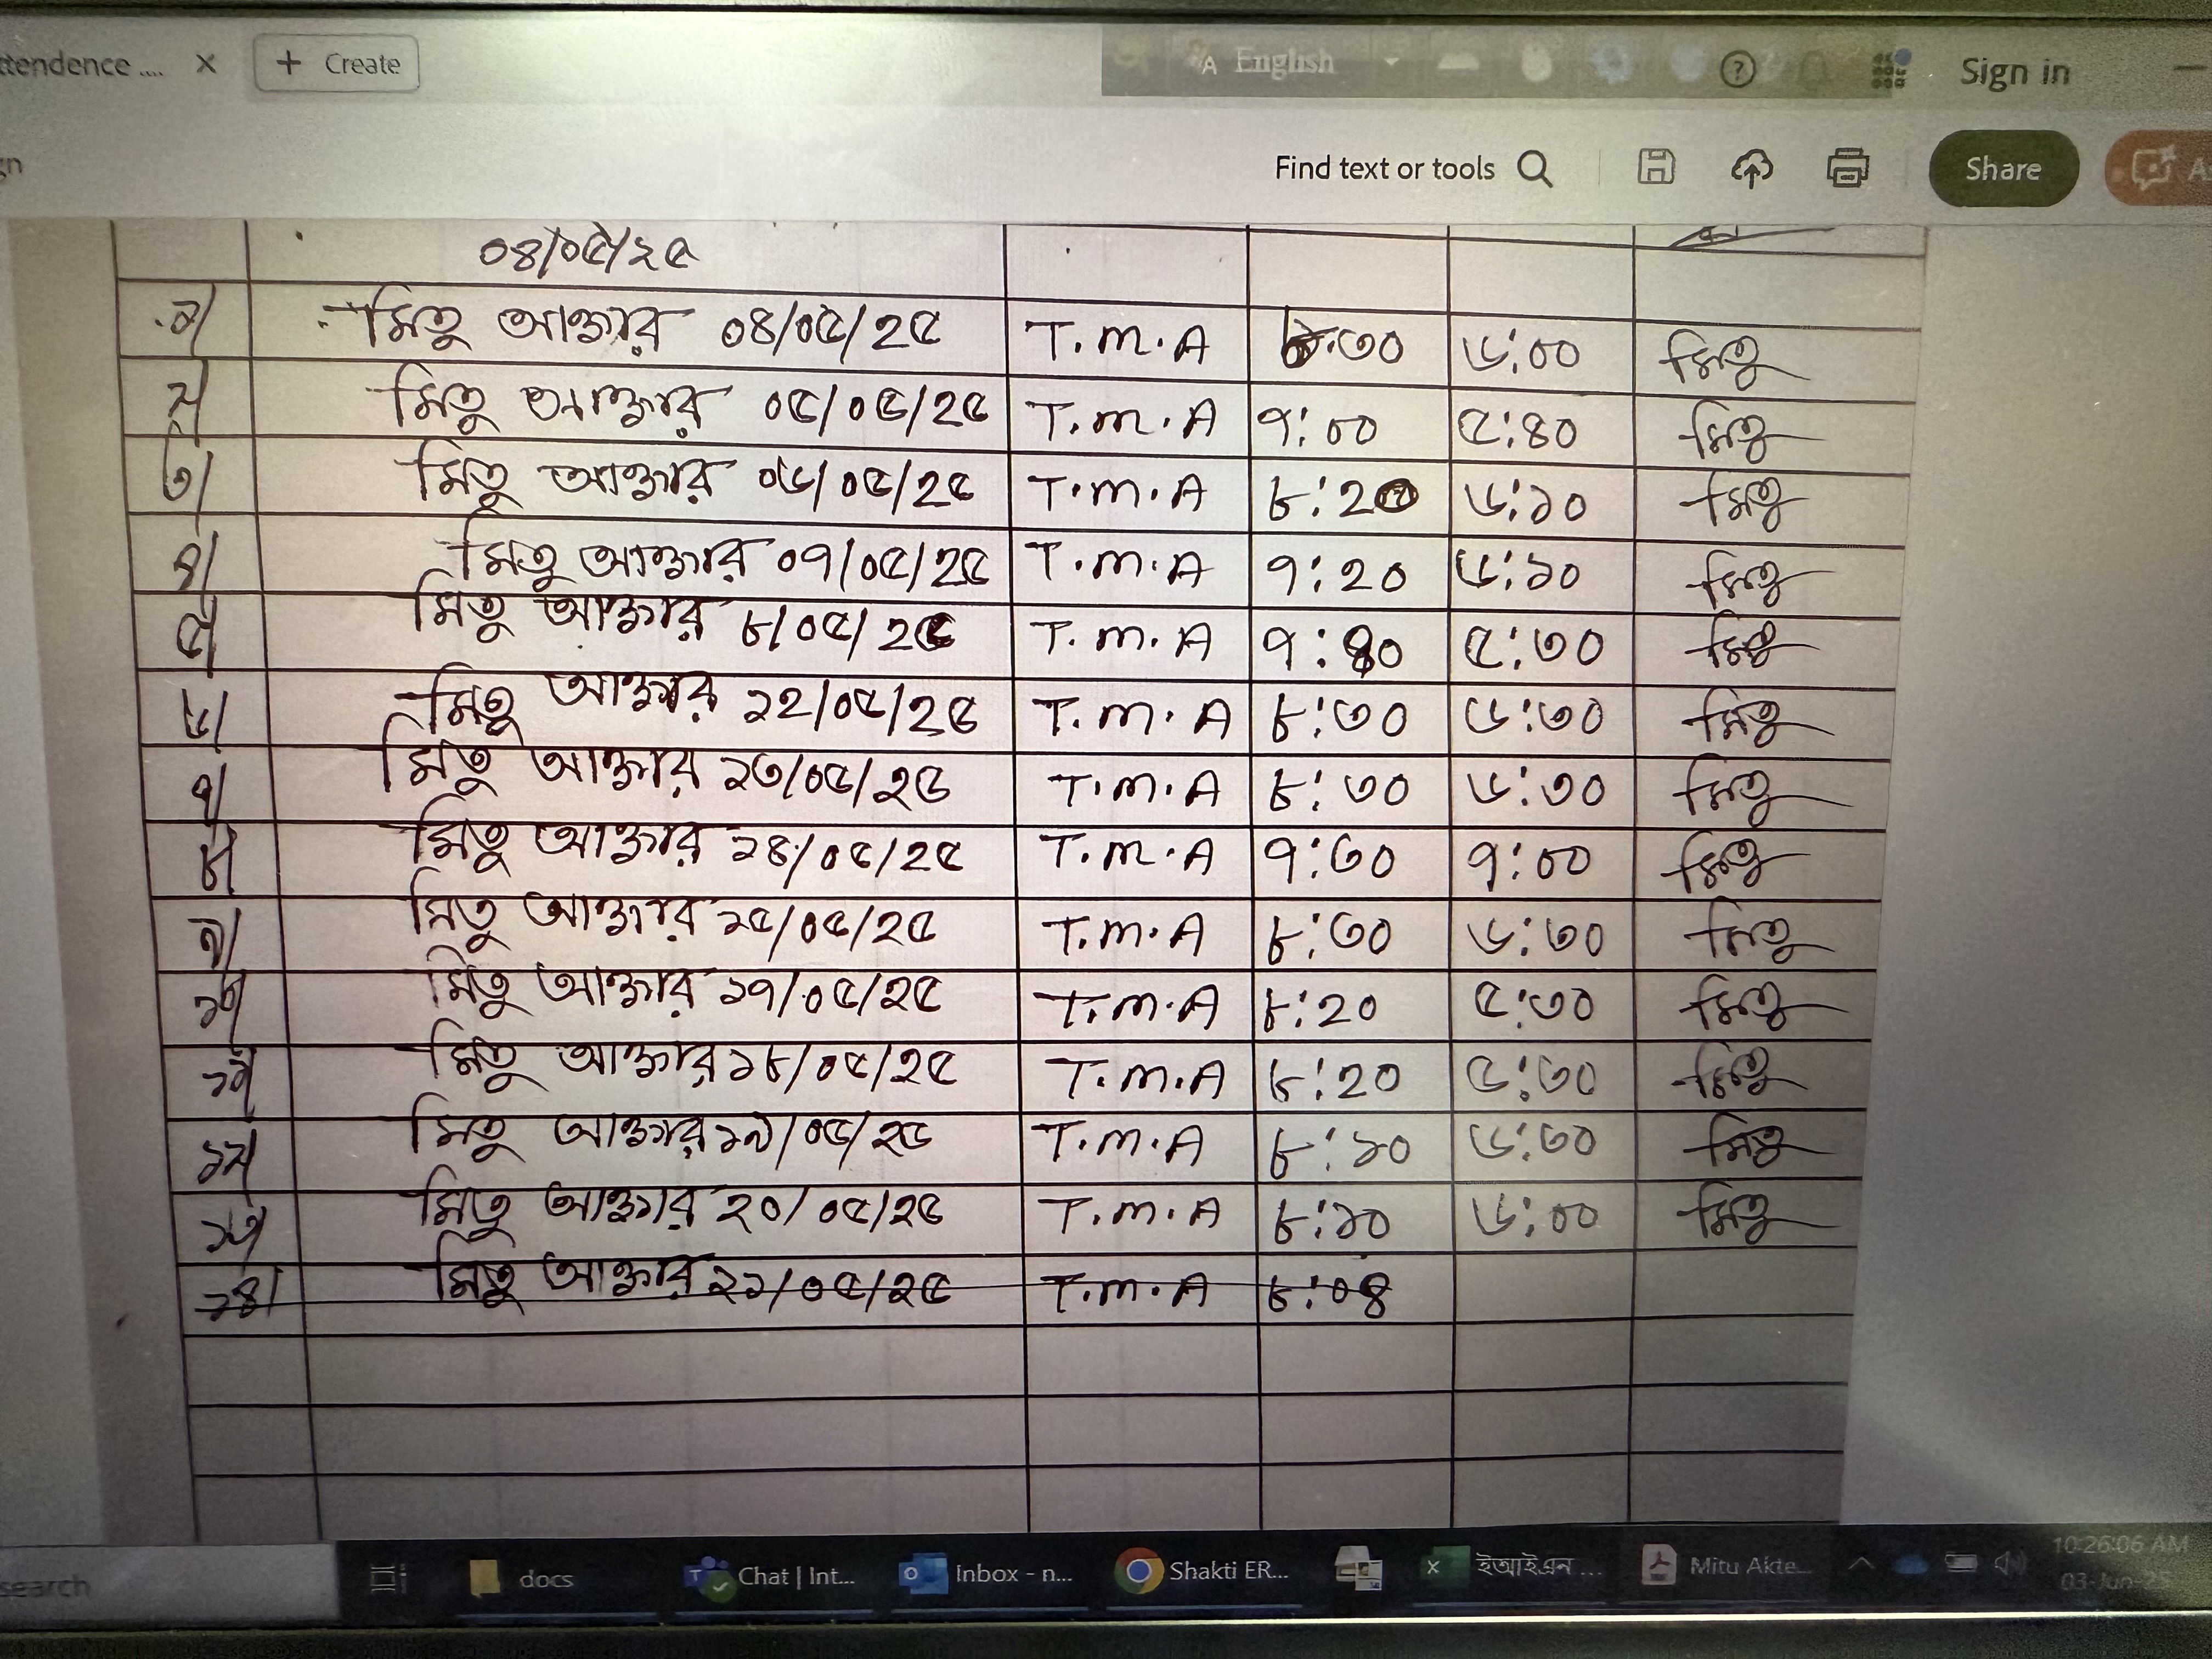 ttendence .... × + Create English ? Sign in
gn Find text or tools Share A
০৪/০৫/২৫
১/ মিতু আক্তার ০৪/০৫/২৫ T.M.A ৮:৩০ ৬:০০ মিতু
২/ মিতু আক্তার ০৫/০৫/২৫ T.M.A ৭:০০ ৫:৪০ মিতু
৩/ মিতু আক্তার ০৬/০৫/২৫ T.M.A ৮:২০ ৬:১০ মিতু
৪/ মিতু আক্তার ০৭/০৫/২৫ T.M.A ৭:২০ ৬:১০ মিতু
৫/ মিতু আক্তার ৮/০৫/২৫ T.M.A ৭:৪০ ৫:৩০ মিতু
৬/ মিতু আক্তার ১২/০৫/২৫ T.M.A ৮:৩০ ৬:৩০ মিতু
৭/ মিতু আক্তার ১৩/০৫/২৫ T.M.A ৮:৩০ ৬:৩০ মিতু
৮/ মিতু আক্তার ১৪/০৫/২৫ T.M.A ৭:৩০ ৭:০০ মিতু
৯/ মিতু আক্তার ১৫/০৫/২৫ T.M.A ৮:৩০ ৬:৩০ মিতু
১০/ মিতু আক্তার ১৭/০৫/২৫ T.M.A ৮:২০ ৫:৩০ মিতু
১১/ মিতু আক্তার ১৮/০৫/২৫ T.M.A ৮:২০ ৫:৩০ মিতু
১২/ মিতু আক্তার ১৯/০৫/২৫ T.M.A ৮:১০ ৬:৩০ মিতু
১৩/ মিতু আক্তার ২০/০৫/২৫ T.M.A ৮:১০ ৬:০০ মিতু
১৪/ মিতু আক্তার ২১/০৫/২৫ T.M.A ৮:০৪
search docs Chat | Int... Inbox - n... Shakti ER... ইআইএন ... Mitu Akte... 10:26:06 AM
03-Jun-25